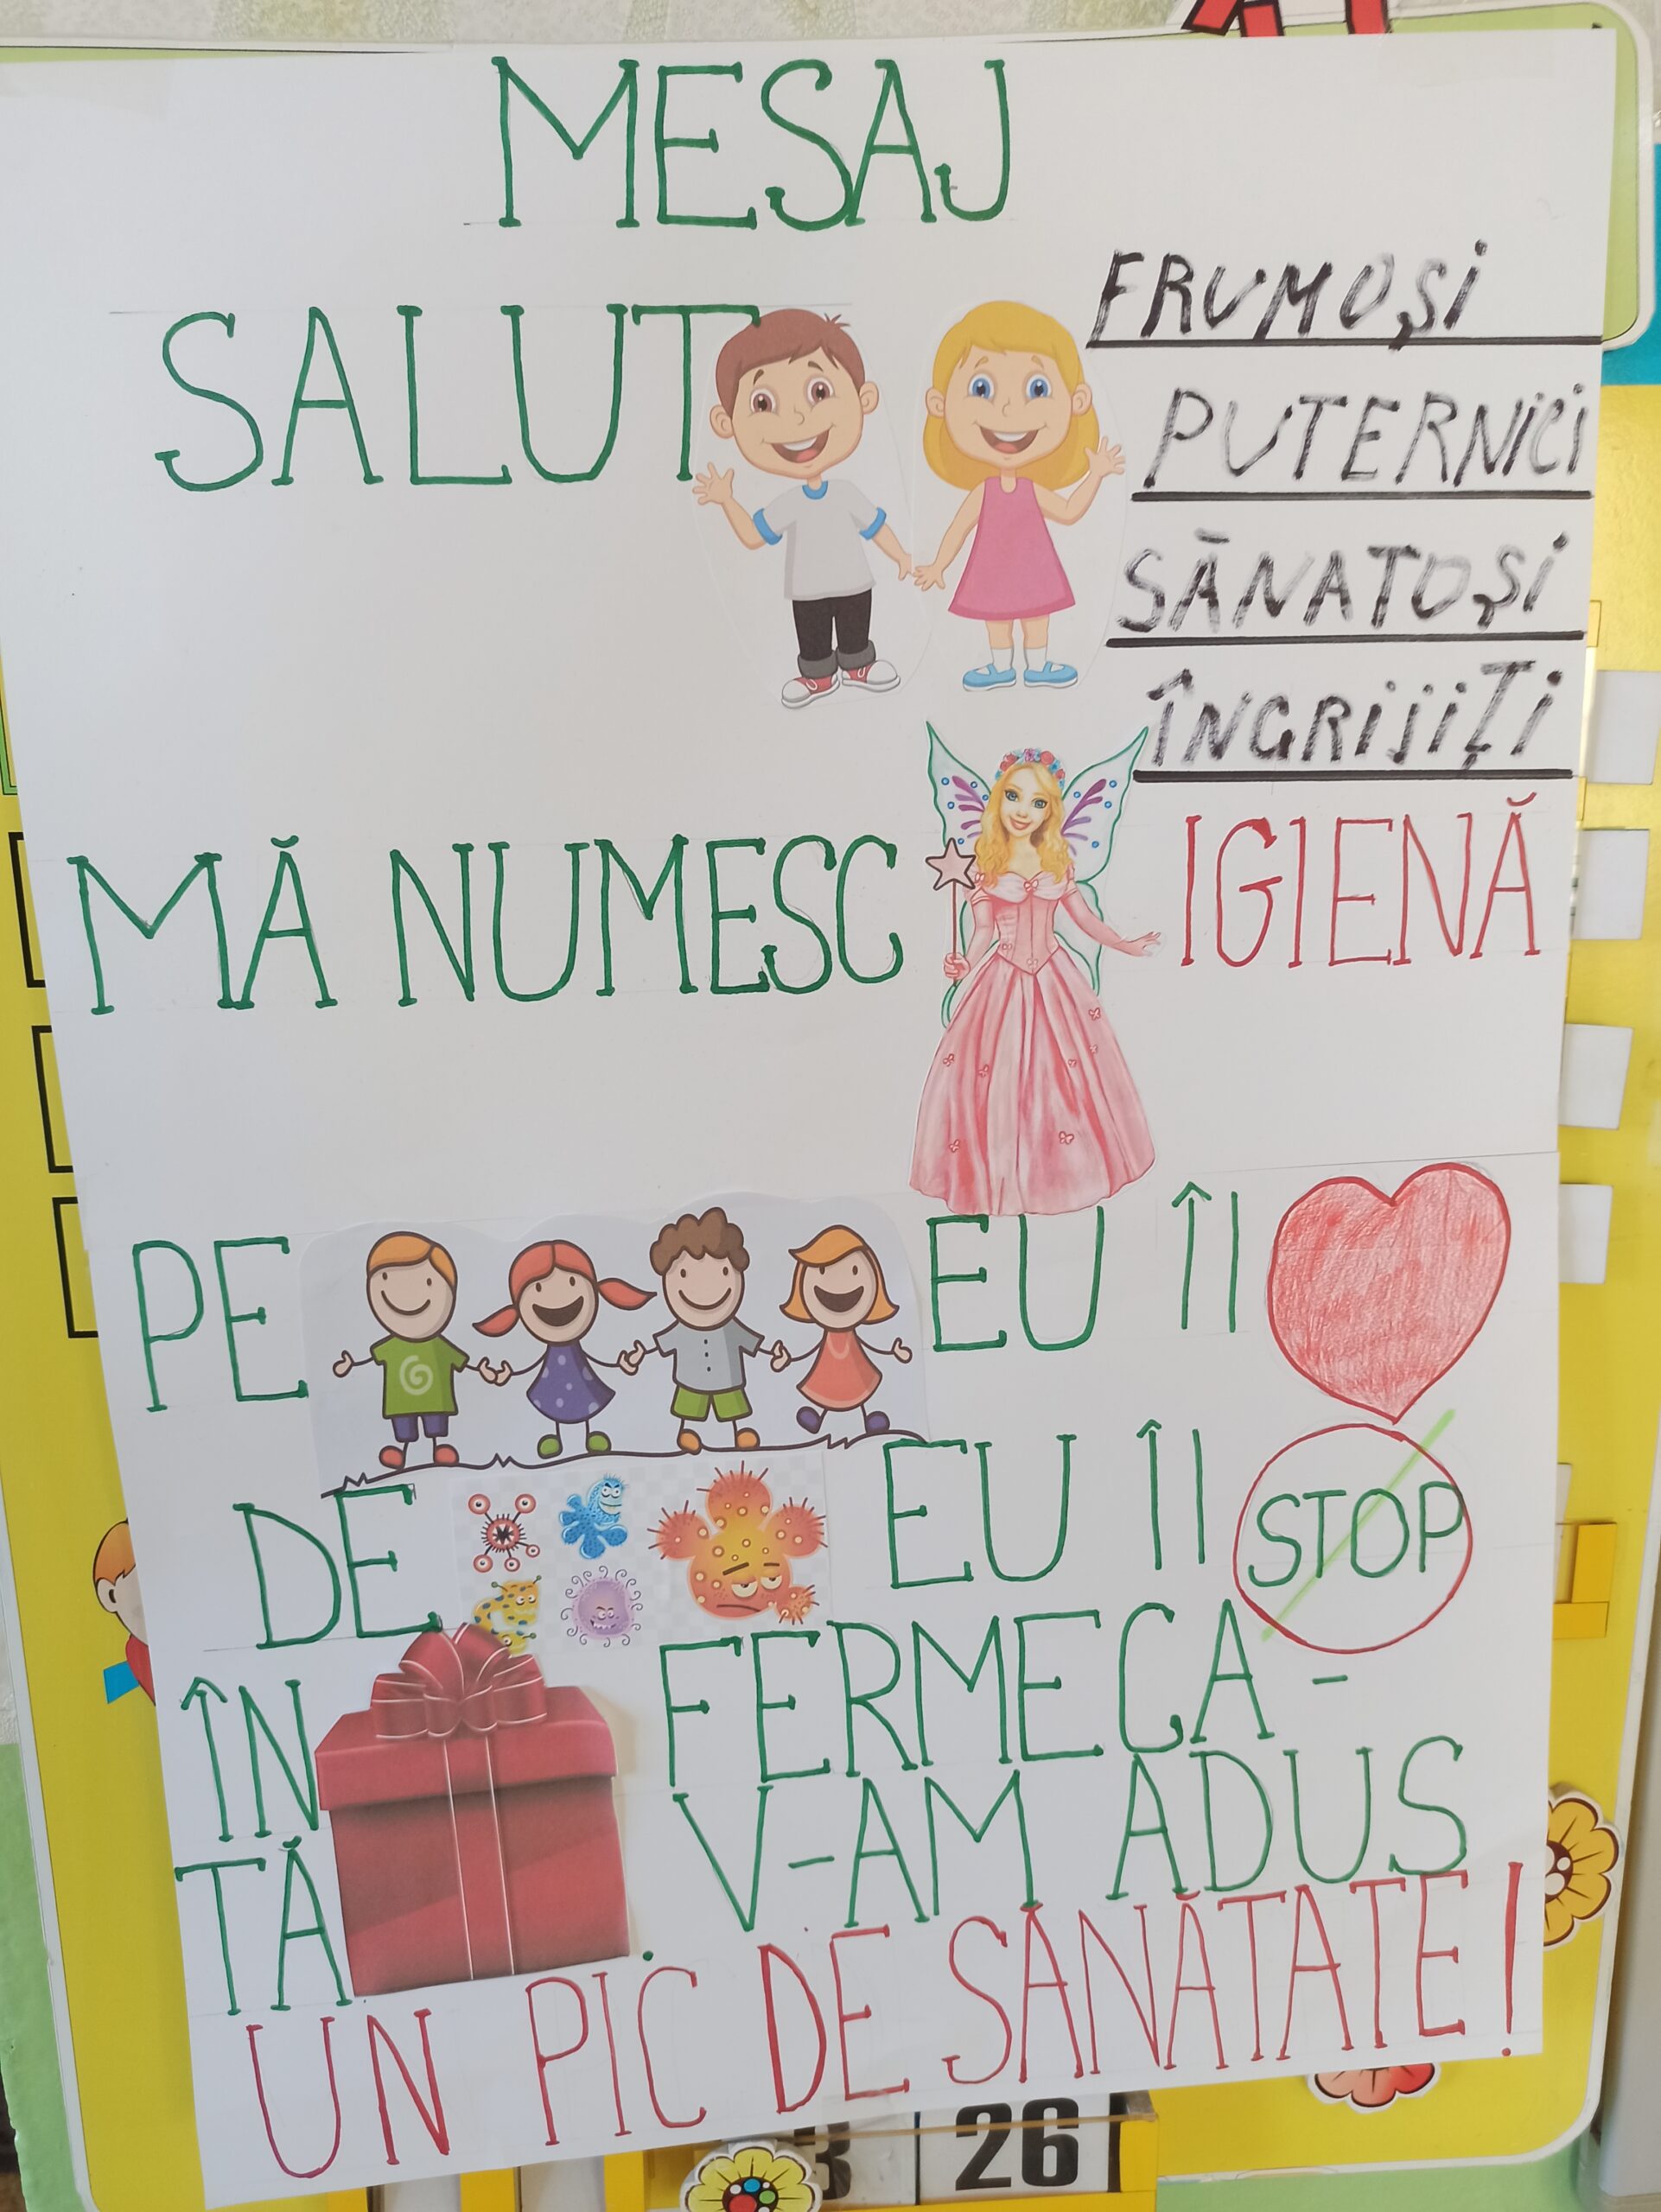 MESAJ
SALUT
FRUMOȘI
PUTERNICI
SĂNATOȘI
ÎNGRIJIȚI
MĂ NUMESC IGIENĂ
PE EU ÎI
DE EU ÎI STOP
ÎN FERMECA-
TĂ V-AM ADUS
UN PIC DE SĂNĂTATE!
26